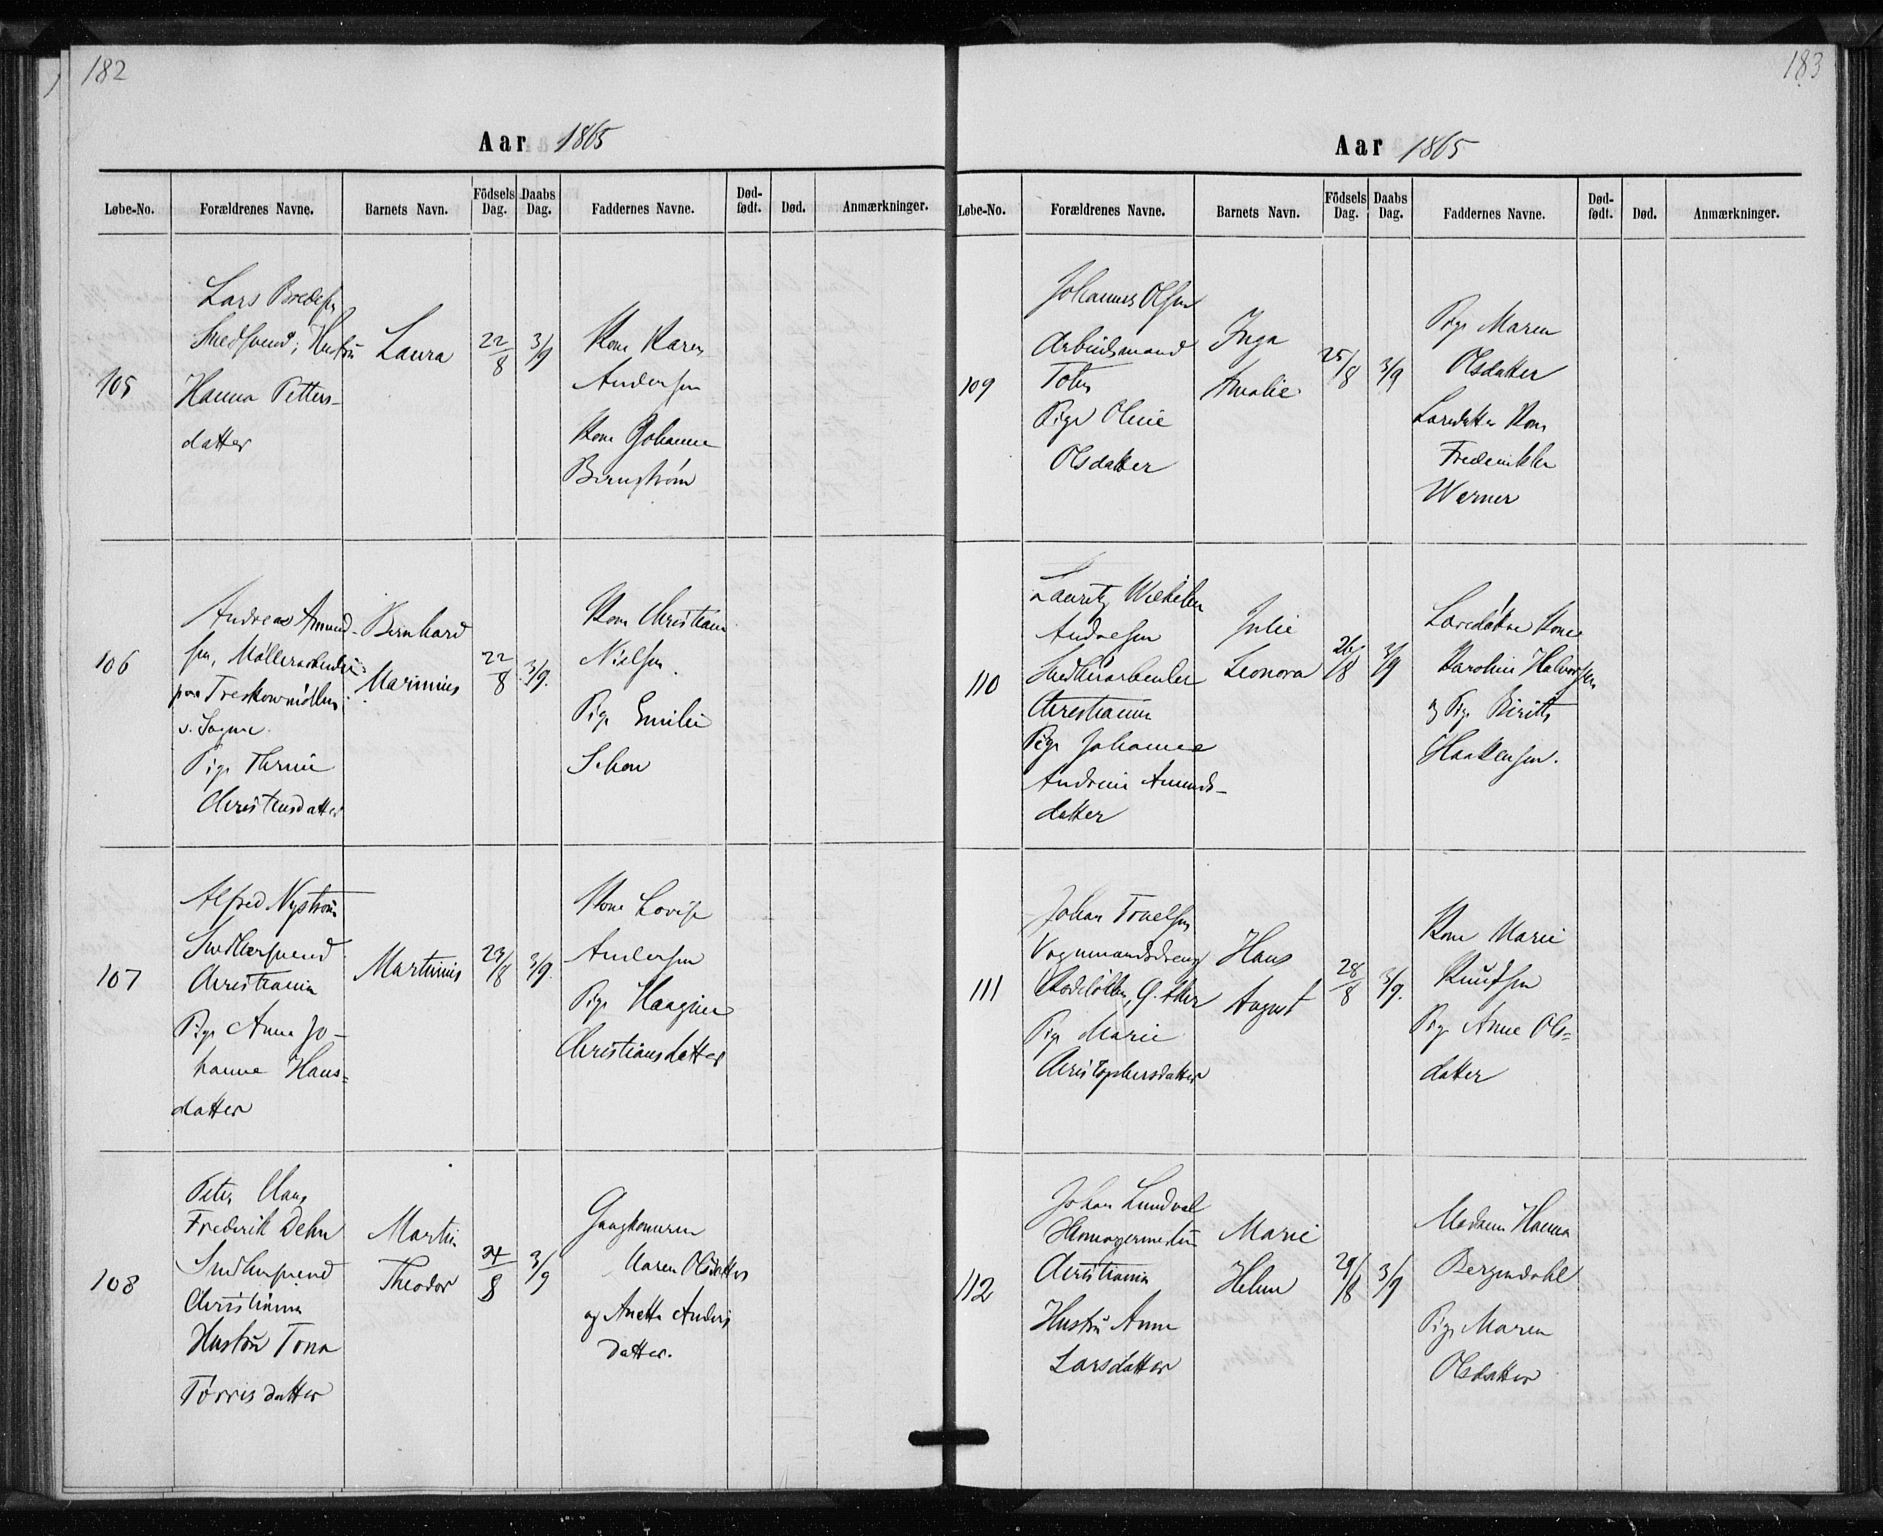 182
Aar 1865
Løbe-No. Forældrenes Navne. Barnets Navn. Födsels Dag. Daabs Dag. Faddernes Navne. Død-født. Død. Anmærkninger.
105
Lars Bredesen
Smedsvend, Hustru
Hanna Petters-
datter
Laura
22/8
3/9
Kone Karen
Andersen
Kone Johanne
106
Andreas Amund-
sen, Møllerarbeider
paa Treskowmøllen
v. Sagene
Pige Thrine
Christensdatter
Bernhard
Marinius
22/8
3/9.
Kone Christiane
Nielsen.
Pige Emilie
Schou
107
Alfred Nystrøm
Snedkersvend
Christiania
Pige Anna Jo-
hanne Hans=
datter
Martinius
23/8
3/9.
Kone Lovise
Andersen
Pige Haagine
Christiansdatter
108
Peter Claus
Frederik Dehn
Snedkersvend
Christiania
Hustru Tona
Tørrisdatter
Martin
Theodor
24/8
3/9
Gangkonerne
Maren Olsdatter
og Anette Anders
datter.
183
Aar 1865
Løbe-No. Forældrenes Navne. Barnets Navn. Födsels Dag. Daabs Dag. Faddernes Navne. Død-födt. Død. Anmærkninger.
109
Johannes Olsen
Arbeidsmand
Toten
Pige Oline
Olsdatter
Inga
Amalie
25/8
3/9
Pige Maren
Olsdatter
Kone
Frederikke
Werner
110
Lauritz Wilhelm
Andresen
Snedkerarbeider
Christiania
Pige Johanne
Andrine Amunds-
datter
Julie
Leonora
26/8
3/9
Kone
Karoline Halvorsen
og Pige Biritte
Haakensen.
111
Johan Truelsen
Vognmandsdreng
Pige Marie
Christophersdatter
Hans
August
28/8
3/9.
Kone Marie
Knudsen
Pige Anne Ols=
datter
112
Johan Lundval
Christiania
Hustru Anne
Larsdatter
Marie
Helene
29/8
3/9
Madam Hanna
Bergendahl
Pige Maren
Olsdatter